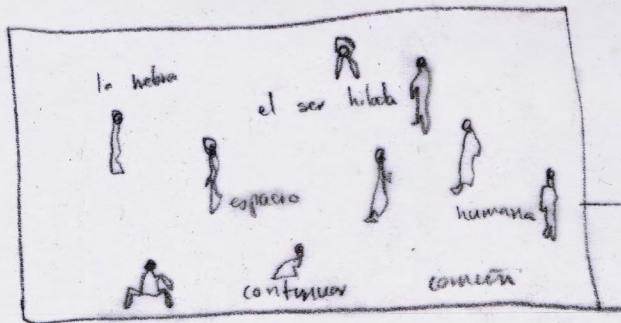 la hebra
el ser hilado
espacio
humana
continuar
común